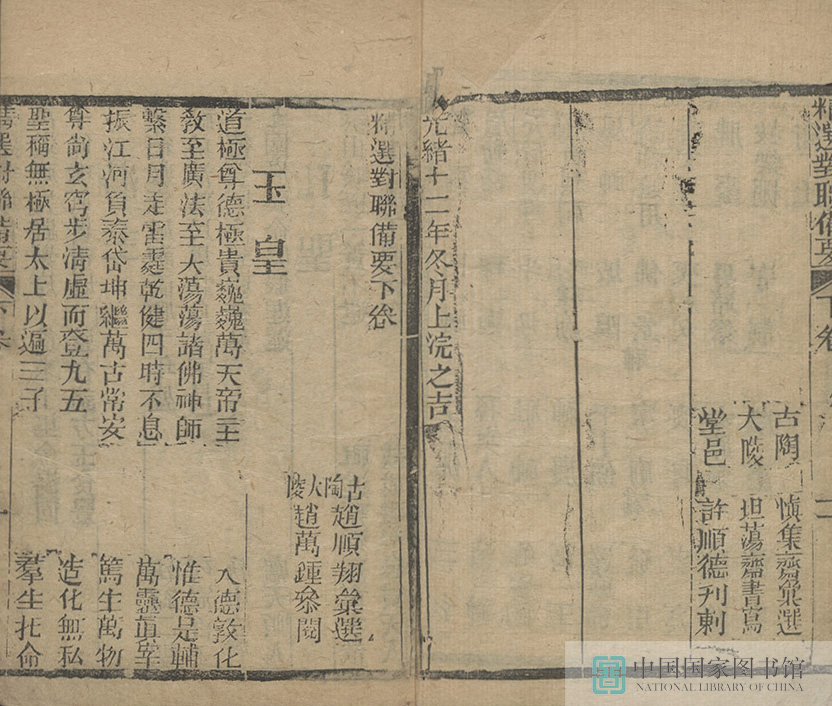 精選對聯備要 下卷 二
古陶 慎集齋彙選
大陵 坦蕩齋書寫
堂邑 許順德刋刺
光緒十二年冬月上浣之吉
精選對聯備要下卷
古陶趙順翔彙選
大陵趙萬鍾參閱
玉皇
道極尊德極貴巍巍萬天帝主
大德敦化
教至廣法至大蕩蕩諸佛神師
惟德是輔
繫日月走雷霆乾健四時不息
萬靈真宰
振江河負泰岱坤繼萬古常安
篤生萬物
尊尚玄穹步清虛而登九五
造化無私
聖稱無極居太上以遍三千
羣生托命
精選對聯備要 下卷 一
中国国家图书馆
NATIONAL LIBRARY OF CHINA